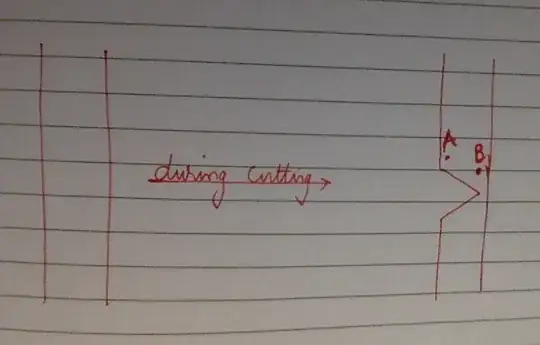 A
B
during cutting